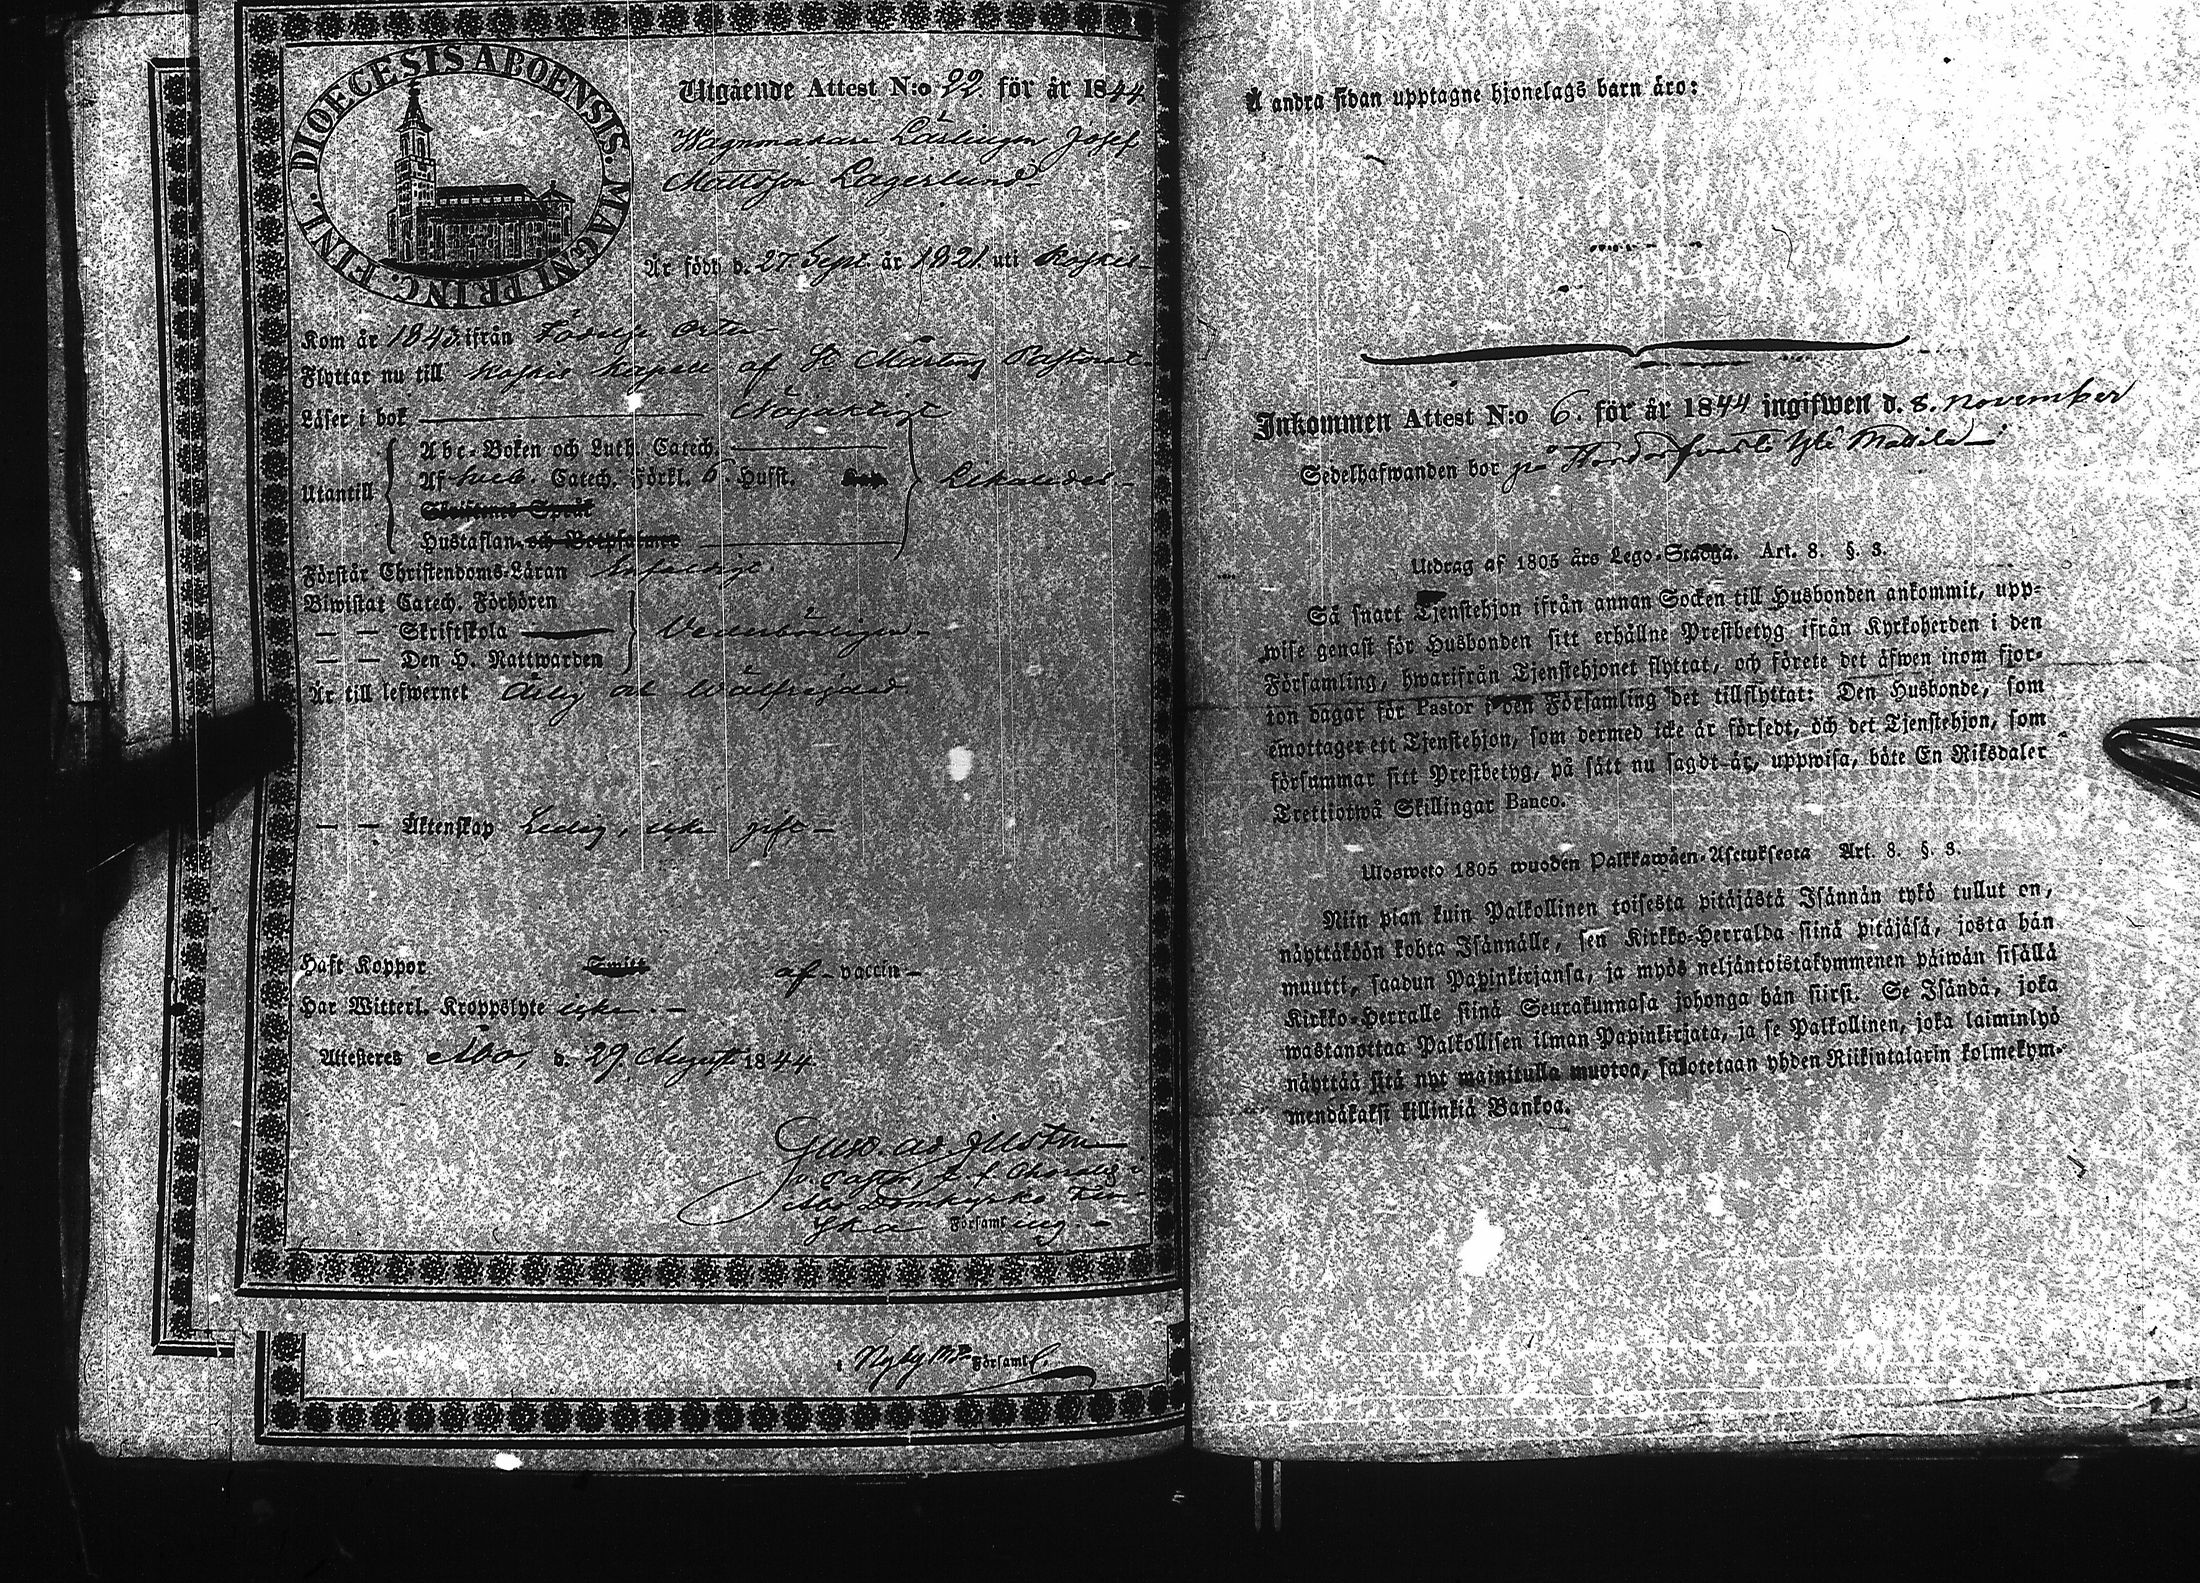 DIOECESIS ABOENSIS. MAGNI PRINC. FINL.
Utgående Attest N:o 22. för år 1844
Wagnmakare Lärlingen Josef
Mattsson Lagerlund
Är född d. 27 Sept. år 1821. uti Koskis
Kom år 1843 ifrån Födelse Orten
Flyttar nu till Koskis Kapell af St Mårtens Pastorat
Läser i bok Nöjaktigt
Abc-Boken och Luth. Catech.
Utantill Af Sveb. Catech. Förkl. 5. Hufst. Likaledes
Skriftenes Språk
Hustaflan och Botpsalmer
Förstår Christendoms-Läran enfaldigt.
Biwistat Catech. Förhören
— — Skriftskola Vederbörligen
— — Den H. Nattwarden
Är till lefwernet Ärlig och Wälfrejdad
— — Äktenskap Ledig, icke gift
Haft Koppor Smitt af vaccin
Har Witterl. Kroppslyte icke.
Attesteres Åbo, d. 29 Augusti 1844
Gust. Ad.
v. Pastor,
Åbo Domkyrko Fin-
ska Församling.
i Nykyrko Församl.
Å andra sidan upptagne hjonelags barn äro:
Inkommen Attest N:o 6. för år 1844 ingifwen d. 8. november
Sedelhafwanden bor på
Utdrag af 1805 års Lego-Stadga. Art. 8. §. 3.
Så snart Tjenstehjon ifrån annan Socken till Husbonden ankommit, upp-
wise genast för Husbonden sitt erhållne Prestbetyg ifrån Kyrkoherden i den
Församling, hwarifrån Tjenstehjonet flyttat, och förete det äfwen inom fjor-
ton dagar för Pastor i den Församling det tillflyttat: Den Husbonde, som
emottager ett Tjenstehjon, som dermed icke är försedt, och det Tjenstehjon, som
försummar sitt Prestbetyg, på sätt nu sagdt är, uppwisa, böte En Riksdaler
Trettiotwå Skillingar Banco.
Ulosweto 1805 wuoden Palkkawäen-Asetuksesta Art. 8. §. 3.
Niin pian kuin Palkollinen toisesta pitäjästä Isännän tykö tullut on,
näyttäköön kohta Isännälle, sen Kirkko-Herralda siinä pitäjäsä, josta hän
muutti, saadun Papinkirjansa, ja myös neljäntoistakymmenen päiwän sisällä
Kirkko-Herralle siinä Seurakunnasa johonga hän siirsi. Se Isändä, joka
wastanottaa Palkollisen ilman Papinkirjata, ja se Palkollinen, joka laiminlyö
näyttää sitä nyt mainitulla muotoa, sakotetaan yhden Riikintalarin kolmekym-
mendäkaksi killinkiä Bankoa.